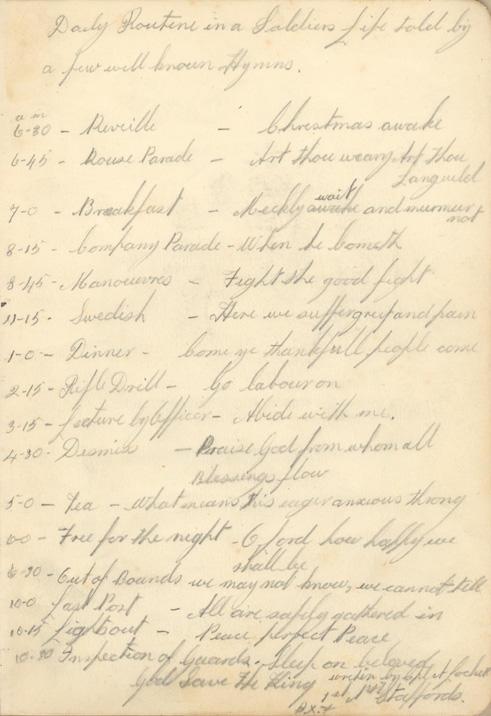 Daily Routine in a Soldiers Life told by
a few well known Hymns.
a m
6-30 - Reveille - Christmas awake
6-45 - Rouse Parade - Art thou weary Art thou
Languid
7-0 - Breakfast - Meekly wait and murmur
not
8-15 - Company Parade - When he cometh
8-45 - Manoeuvres - Fight the good fight
11-15 - Swedish - Here we suffer grief and pain
1-0 - Dinner - Come ye thankfull people come
2-15 - Rifle Drill - Go labour on
3-15 - Lecture by Officer - Abide with me.
4-30 - Dismiss - Praise God from whom all
Blessings flow
5-0 - Tea - What means this eager anxious throng
Free for the night - O lord how happy we
shall be
Out of Bounds we may not know, we cannot tell
10-0 Last Post - All are safely gathered in
10-15 Lights out - Peace perfect Peace
10-30 Inspection of Guards. Sleep on beloved
God Save The King
1st Staffords.